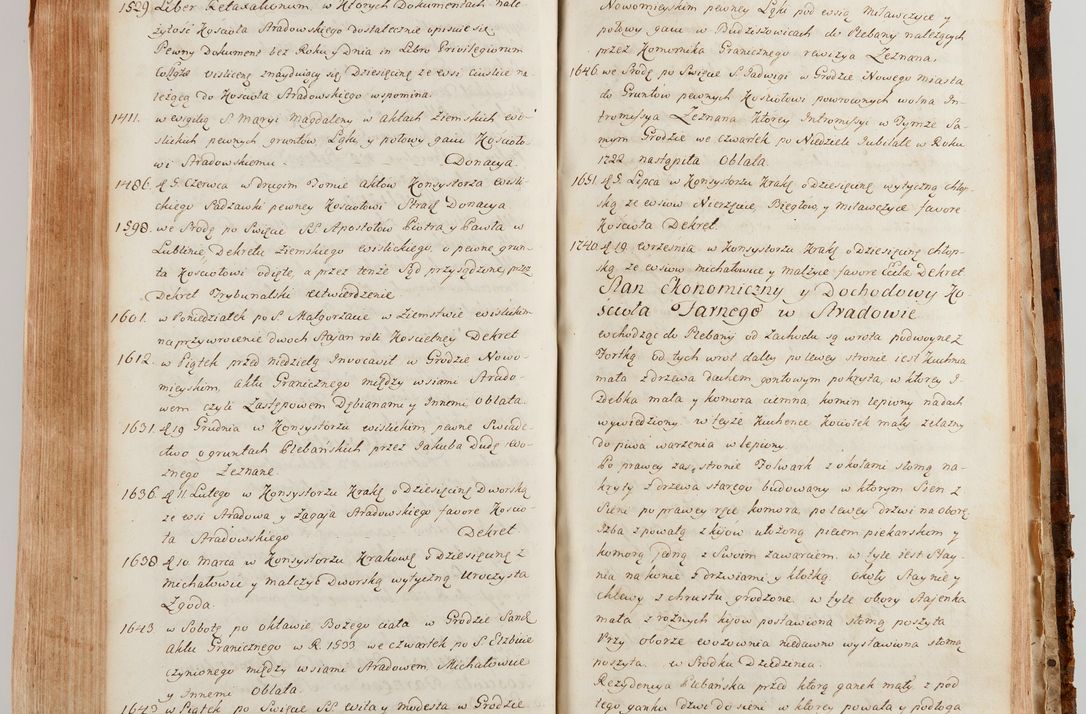 1529. Liber Retaxationum, w Ktorych Dokumentach nale
żytość Kościoła Stradowskiego dostatecznie opisuie się.
Pewny Dokument bez Roku y dnia in Libro Privilegiorum
Collgtæ Wislicenę znayduiący się, Dziesięcinę ze wsi Ciuslice na
leżącą do Kościoła Stradowskiego wspomina.
1411. w wigilią S. Maryi Magdaleny w Aktach Ziemskich Wi-
slickich pewnych gruntow, Łąki, y połowy gaiu Kościoło-
wi Stradowskiemu. Donacya.
1486. d. 5. Czerwca w drugim Tomie aktow Konsystorza wisli-
ckiego Sadzawki pewney Kościołowi Strad: Donacya
1598. we Srodę po Swięcie SS. Apostołow Piotra, y Pawła w
Lublinie, Dekretu Ziemskiego wislickiego, o pewne grun-
ta Kościołowi odięte, a przez tenże Sąd przysądzone, przez
Dekret Trybunalski utwierdzenie
1601. w Poniedziałek po S. Małgorzacie w Ziemstwie wislickim
na przywrocenie dwoch Staian roli Kościelney Dekret
1612. w Piątek przed niedzielą Invocavit w Grodzie Nowo-
mieyskim, aktu Granicznego między wsiami Strado-
wem czyli Zastępowem Dębianami y Innemi Oblata.
1631. d. 19 Grudnia w Konsystorzu wislickim, pewne Swiade-
ctwo o gruntach Plebańskich przez Jakuba Dudę Wo-
znego Zeznane.
1636. d. 11. Lutego w Konsystorzu Krakę o Dziesięcinę Dworską
ze wsi Stradowa y Zagaia Stradowskiego favore Koscio-
ła Stradowskiego Dekret.
1638 d. 10. Marca w Konsystorzu Krakowę o Dziesięcinę z
Michałowic y Małczyc Dworską wytyczną Uroczysta
Zgoda.
1643. w Sobotę po oktawie Bożego ciała w Grodzie Sand:
aktu Granicznego w R. 1533 we czwartek po S. Elzbiecie
czynionego między wsiami Stradowem, Michałowice
y Innemi Oblata.
1645 w Piątek po Swięcie SS. wita y modesta w Grodzie
Nowomieyskim pewney Łąki pod wsią Miławczyce y
połowy gaiu w Budziszowicach do Plebany należących
przez Komornika Granicznego rewizya Zeznana.
1646. we Srodę po Swięcie S. Jadwigi w Grodzie Nowego miasta
do Gruntow pewnych Kościołowi powroconych wolna In-
tromissya Zeznana Ktorey Intromissyi w Tymże Sa-
mym Grodzie we czwartek po Niedzieli Jubilate w Roku
1722. nastąpiła Oblata.
1651. d. 5. Lipca w Konsystorzu Krakę o dziesięcinę wytyczną chłop-
ską ze wsiow Nierzące, Bieglow, y Miławczyce favore
Kościoła Dekret.
1740. d. 19. września w Konsystorzu Krakę o Dziesięcinę chłop-
ską ze wsiow Michałowice y Małzyce favore Eccle Dekret.
Stan Ekonomiczny y Dochodowy Ko-
ścioła Farnego w Stradowie
wchodząc do Plebanij od Zachodu są wrota podwoyne z
Fortką od tych wrot daley po lewey stronie iest Kuchnia
mała z drzewa dachem gontowym pokryta, w ktorey I-
zdebka mała y komora ciemna, komin lepiony nadach
wywiedziony. w teyże Kuchence Kociołek mały żelazny
do piwa warzenia wlepiony.
Po prawey zaś stronie Folwark z okołami słomą na-
kryty z drzewa starego budowany w ktorym Sien z
Sieni po prawey ręce komora, po lewey drzwi na oborę
Izba z powałą z kijow ułożoną piecem piekarskim y
komorą jedną z Swoim zawarciem. w tyle iest Stay-
nia na konie z drzwiami y kłotką. Okoły Staynie y
chlewy z chrustu grodzone w tyle obory Stajenka
mała z rożnych kijow postawiona słomą poszyta.
Przy oborze wozownia niedawno wystawiona słomą
poszyta. w Srodku Dziedzinca.
Rezydencya Plebańska przed ktorą ganek mały, z pod
tego ganku drzwi do sieni w ktorey powała y podłoga